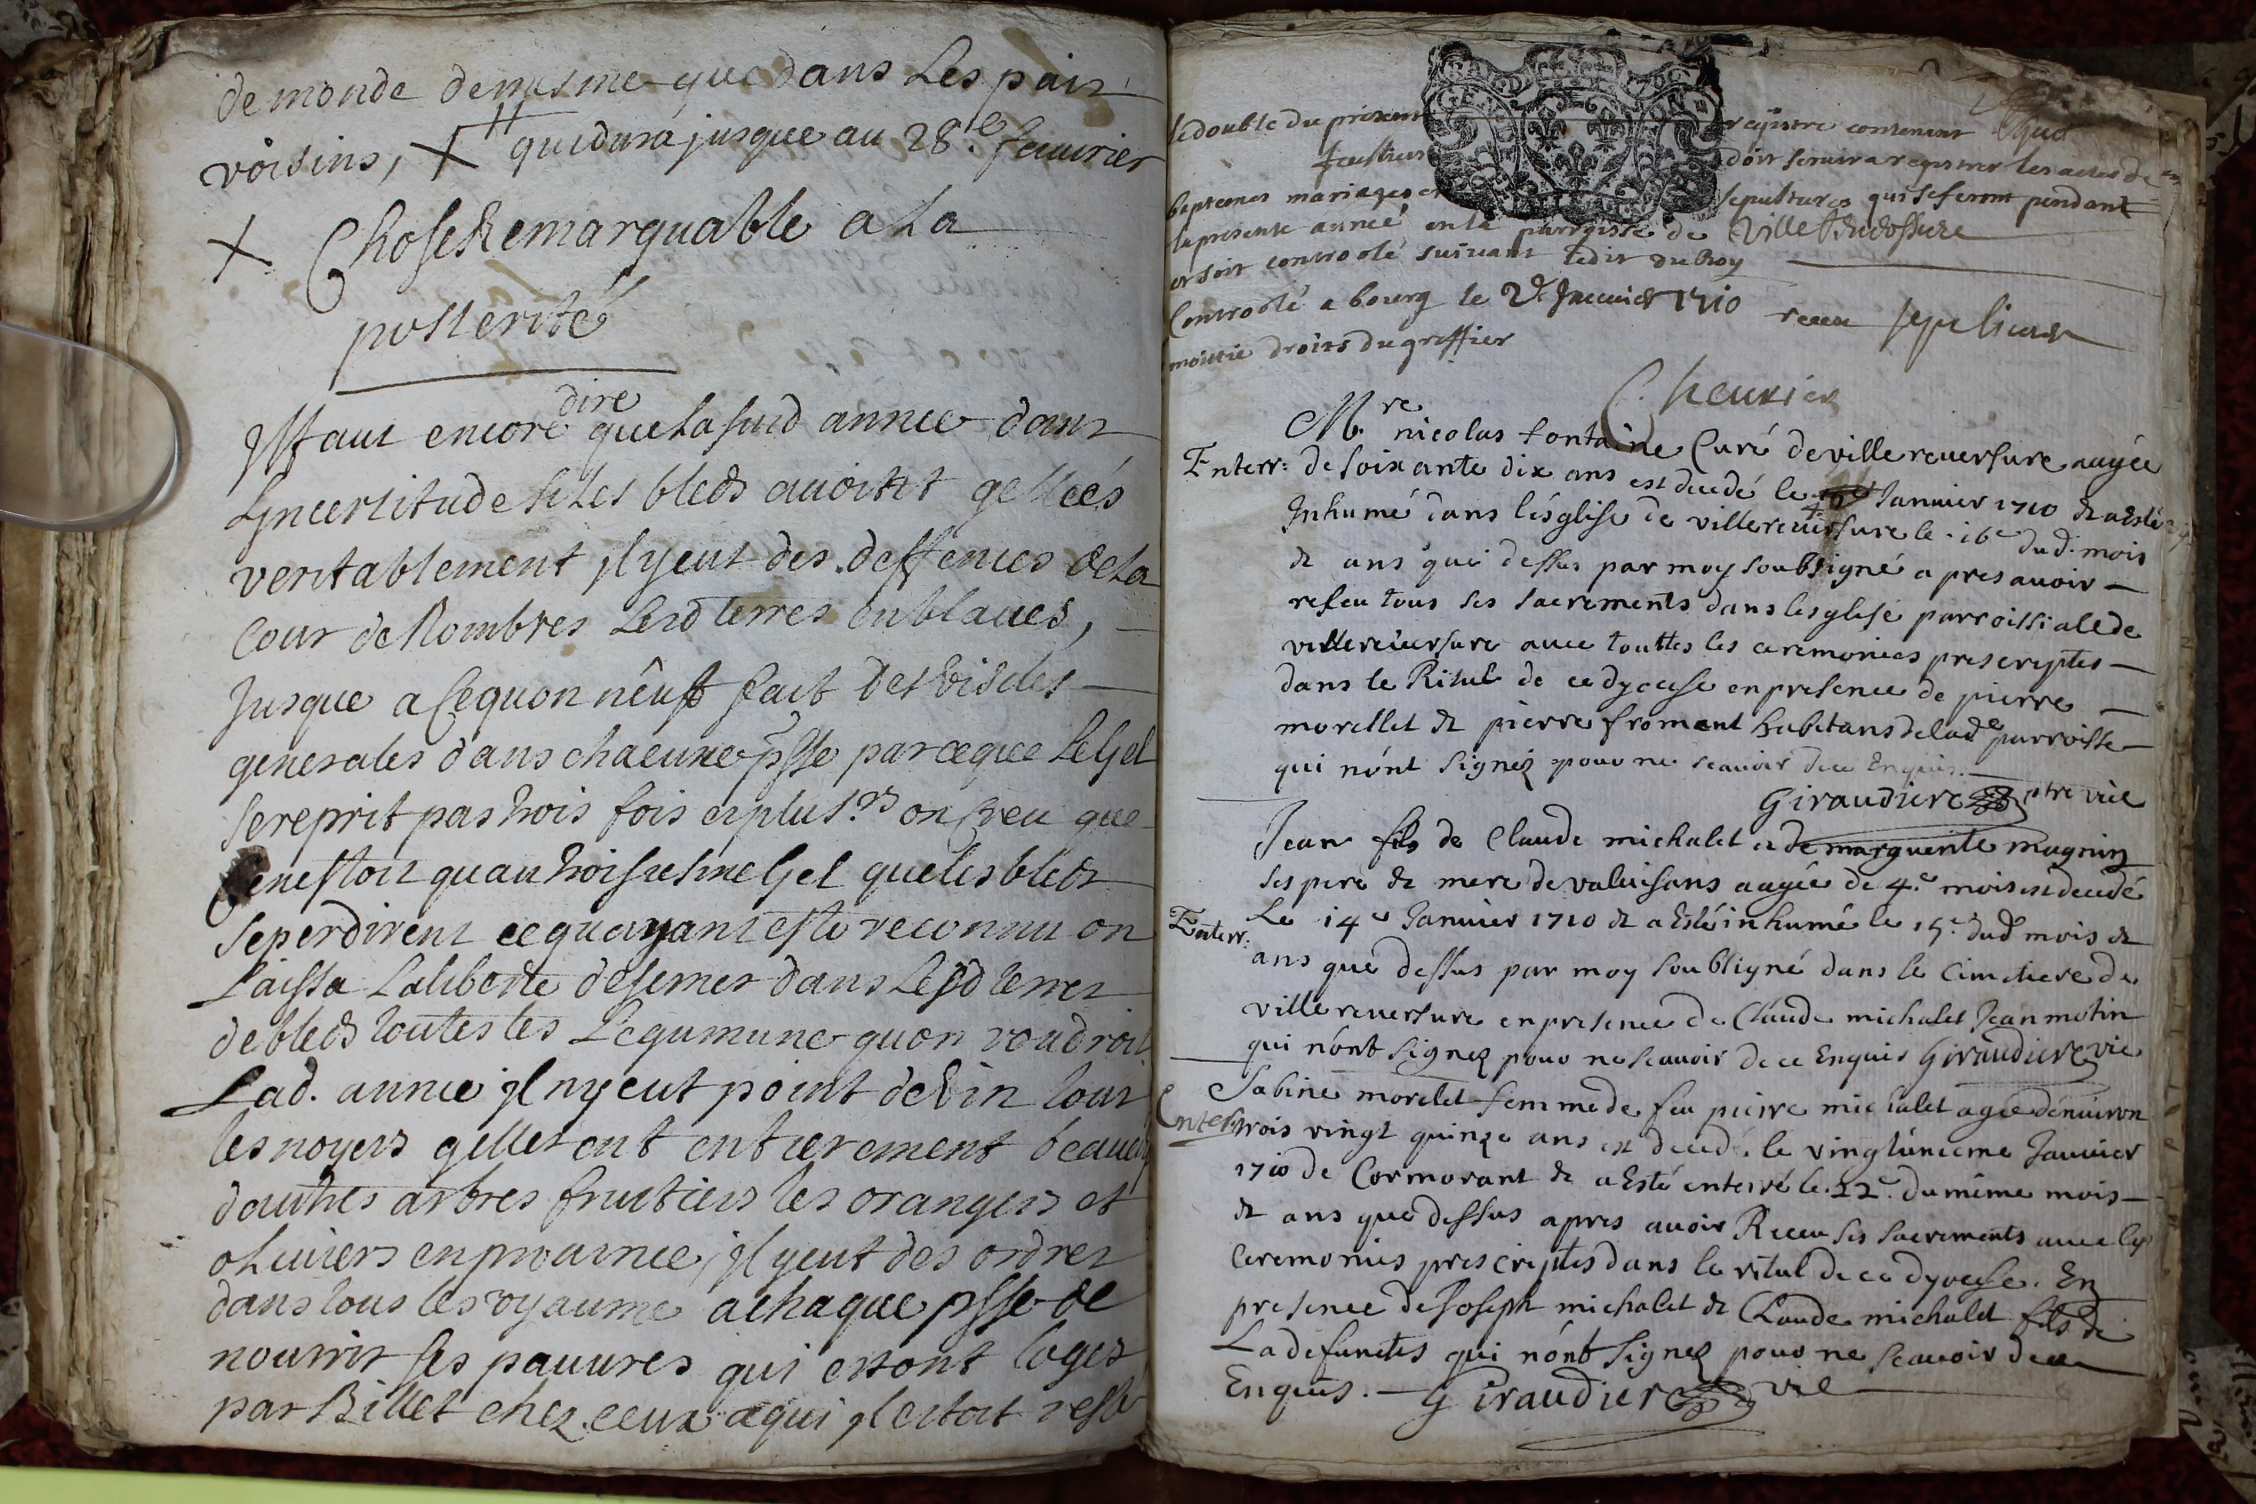 de monde de mesme que dans Les pais
voisins, qui dura jusque au 28.e feuvrier
Chose Remarquable a La
posterité
Il faut encore dire que La susd année dans
Lyncertitude si Les bleds avoient gellées
veritablement il y eut des deffences de La
Cour de Rombres Lesd terres enblavés,
Jusque a ce quon neust fait des visites
generales dans chacune psse parceque Le Gel
se reprit pas trois fois et plus.rs on creu que
Ce nestoit quau troisiesme Gel que les bleds
se perdirent ce quayant esté reconnu on
Laissa La liberte de semer dans Lesd terres
de bleds toutes les Legumune quon voudroit
Lad. annee il ny eut point de vin tous
les noyers gellerent entierement beaucoup
dautres arbres fruitiers les orangers et
oliviers en provaince, il y eut des ordres
dans tous les royaume a chaque psse de
nourrir ses pauvres qui estont loges
par Billet chez ceux a qui il estoit resté
GEND
le double du present registre contenant
feuillets doit servir a registrer les actes de
baptemes mariages et sepultures qui se feront pendant
la presente année en la parroisse de Ville Reverssure
et soit controolé suivant ledit du Roy
Controolé a bourg le 2.e Janvier 1710 receu
moitie droits du greffier
Chevrier
M.re nicolas fontaine Curé de ville reversure aagée
Enterr: de soixante dix ans est decedé le Janvier 1710 & a Esté
Inhumé dans lésglise de villereversure le .16e dud. mois
& ans que dessus par moy soubsigné apres avoir
reseu tous ses sacrements dans lésglise parroissialle de
villereversure avec touttes les ceremonies prescriptes
dans le Ritul de ce dyocese en presence de pierre
morellet & pierre froment habitans de lade parroisse
qui nónt signez pour ne scavoir de ce Enquis.
Giraudier ptre vic
Jean fils de Claude michalet et de marguerite magnin
ses pere & mere de valeisans aagée de 4.e mois est decedé
Le 14e Janvier 1710 & a Esté inhumé le 15.e dud mois &
Enterr: ans que dessus par moy soubsigné dans le Cimetiere de
villereversure en presence de Claude michalet Jean motin
qui nónt signez pour ne scavoir de ce Enquis Giraudier vic
Sabine morelet femme de feu pierre michalet agée dénviron
Enterr: trois vingt quinze ans est decedé le vingtúnieme Janvier
1710 de Cormorant & a Esté enterré le .22e. du méme mois
& ans que dessus apres avoir Receu ses sacrements avec les
Ceremonies prescriptes dans le ritul de ce dyocese. En
presence de Joseph michalet & Claude michalet fils de
La defunctes qui nónt signez pour ne scavoir de ce
Enquis. Giraudier vic